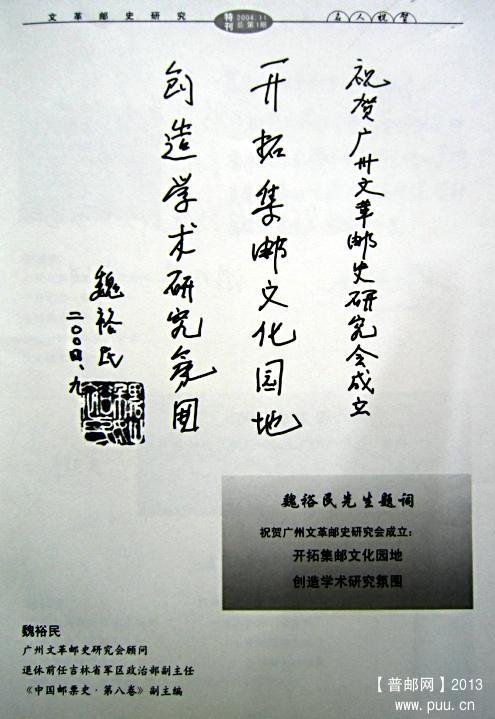 文革邮史研究
特刊
2004.11
总第1期
名人祝贺
祝贺广州文革邮史研究会成立
开拓集邮文化园地
创造学术研究氛围
魏裕民
二00四、九
魏裕民先生题词
祝贺广州文革邮史研究会成立：
开拓集邮文化园地
创造学术研究氛围
魏裕民
广州文革邮史研究会顾问
退休前任吉林省军区政治部副主任
《中国邮票史·第八卷》副主编
【普邮网】2013
www.puu.cn